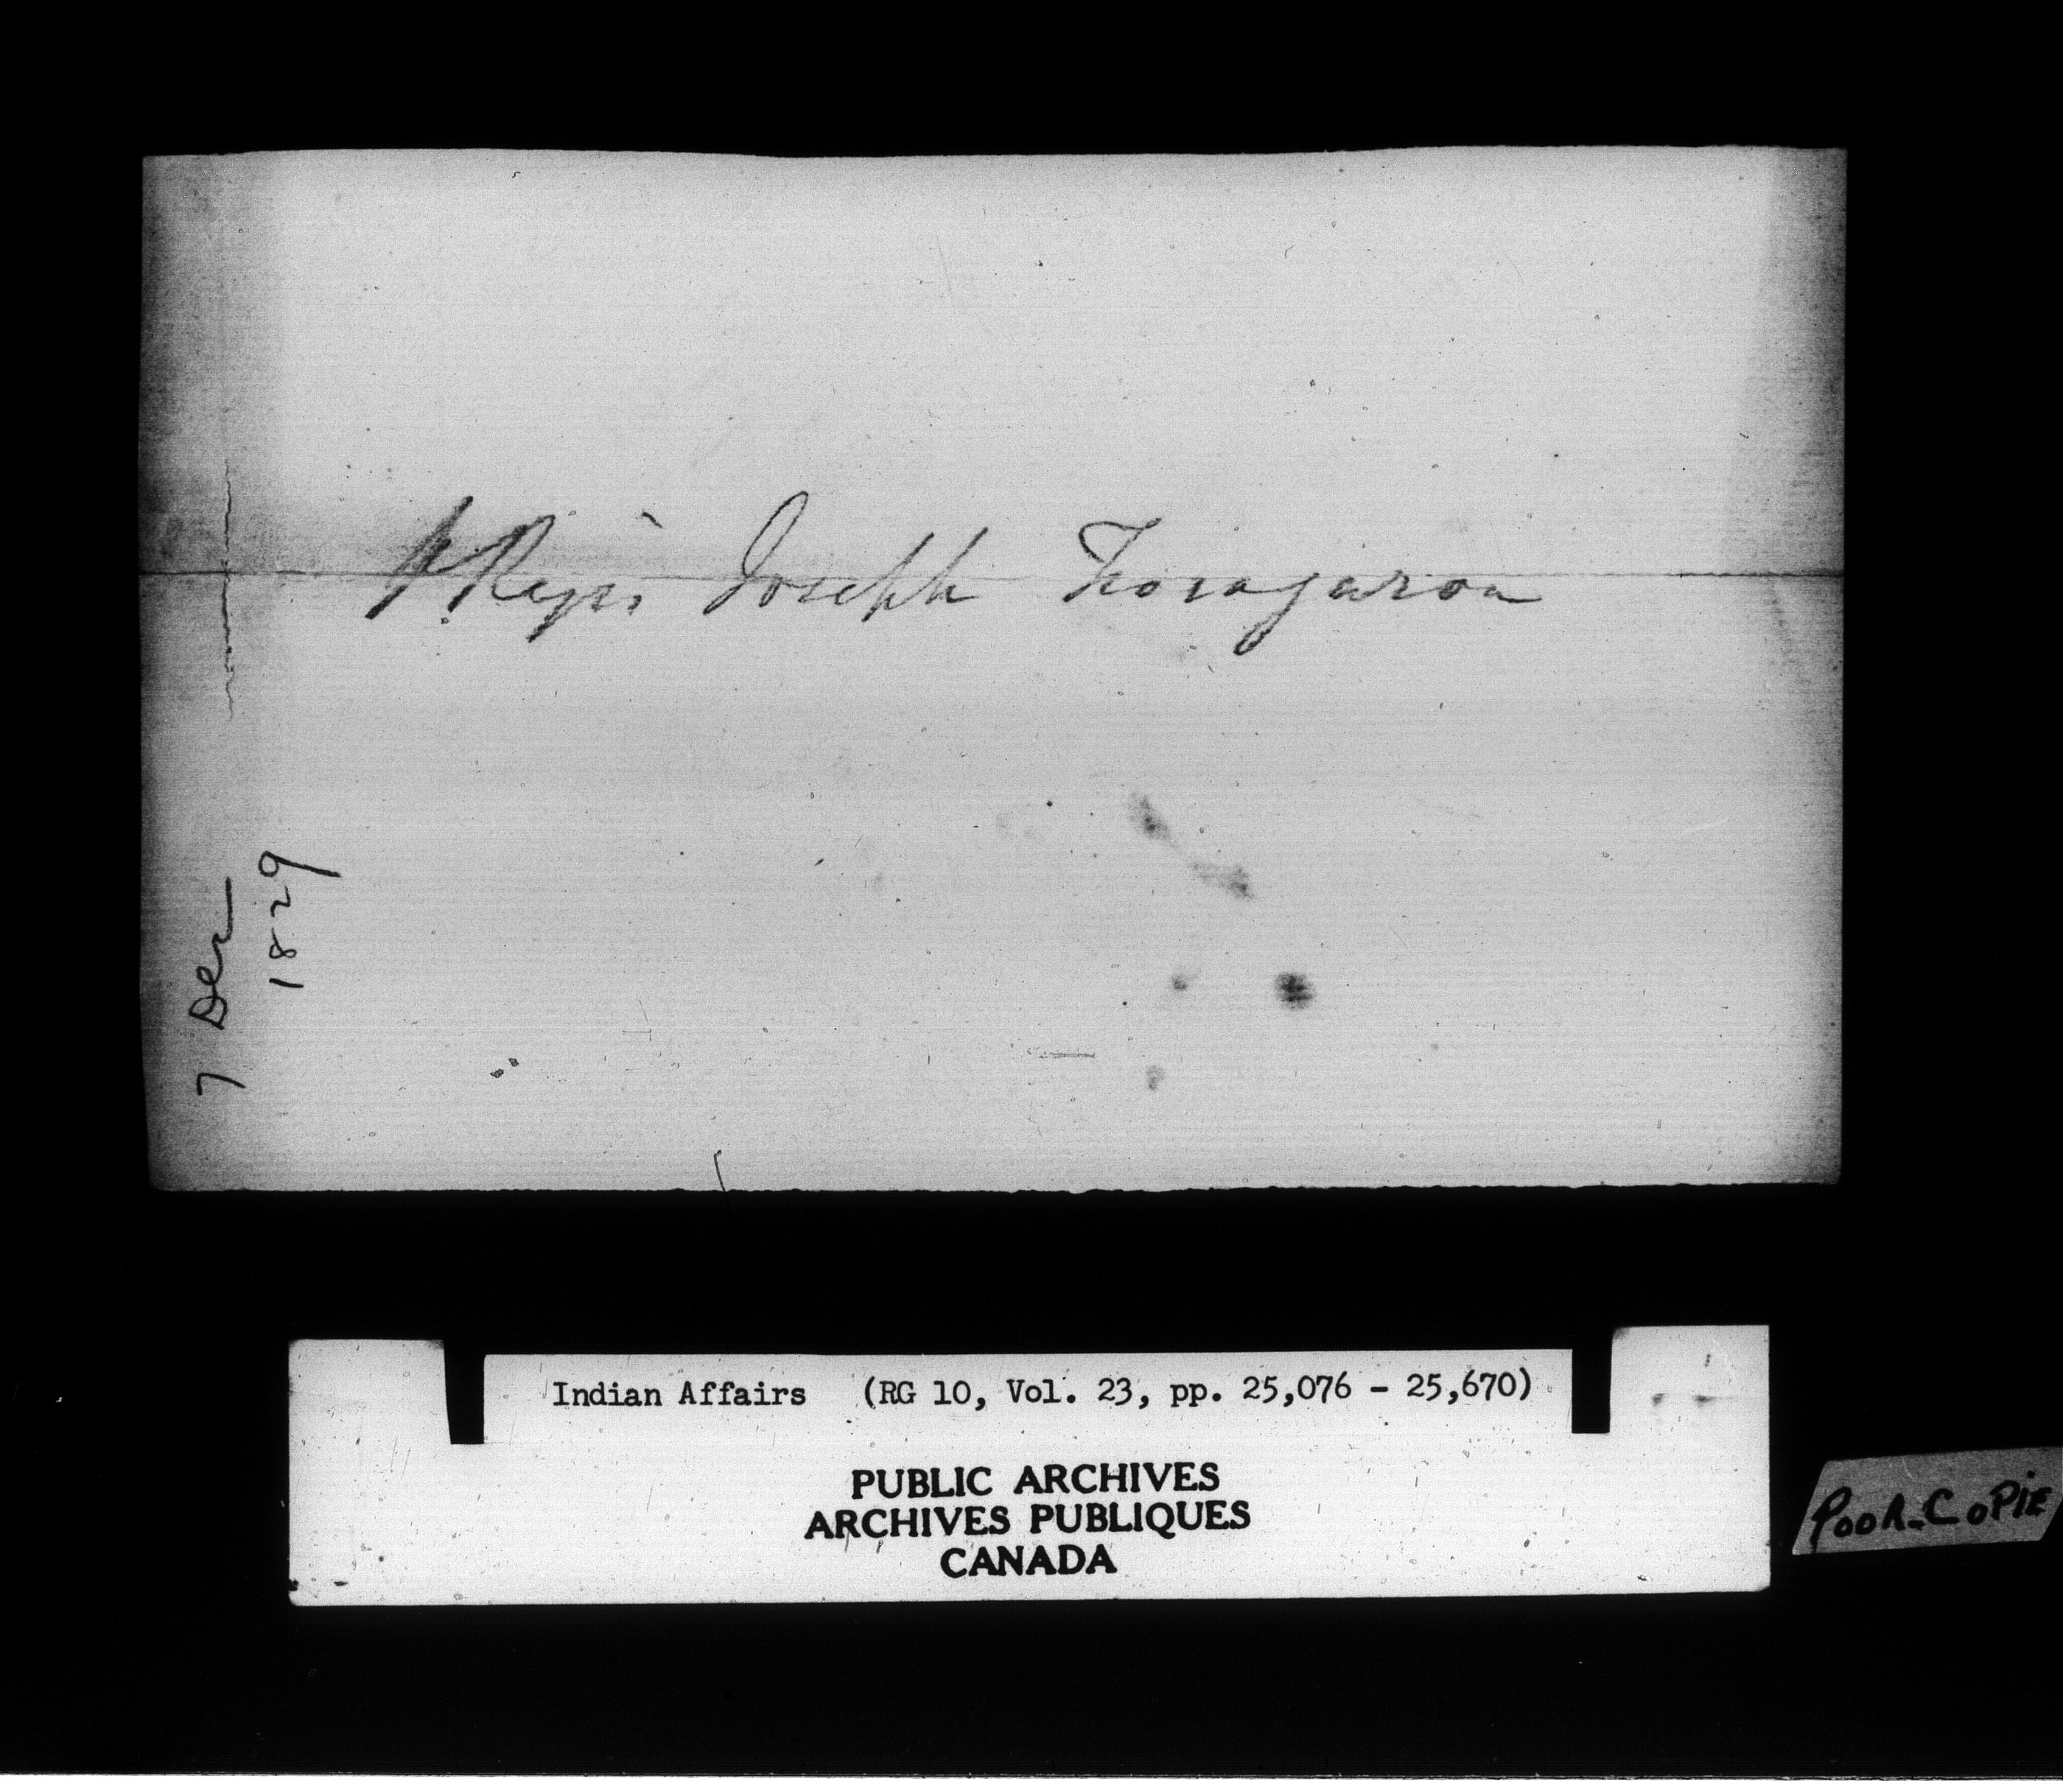 Joseph
7 Dec
1829
Indian Affairs (RG 10, Vol. 23, pp. 25,076 - 25,670)
PUBLIC ARCHIVES
ARCHIVES PUBLIQUES
CANADA
POOR-COPIE